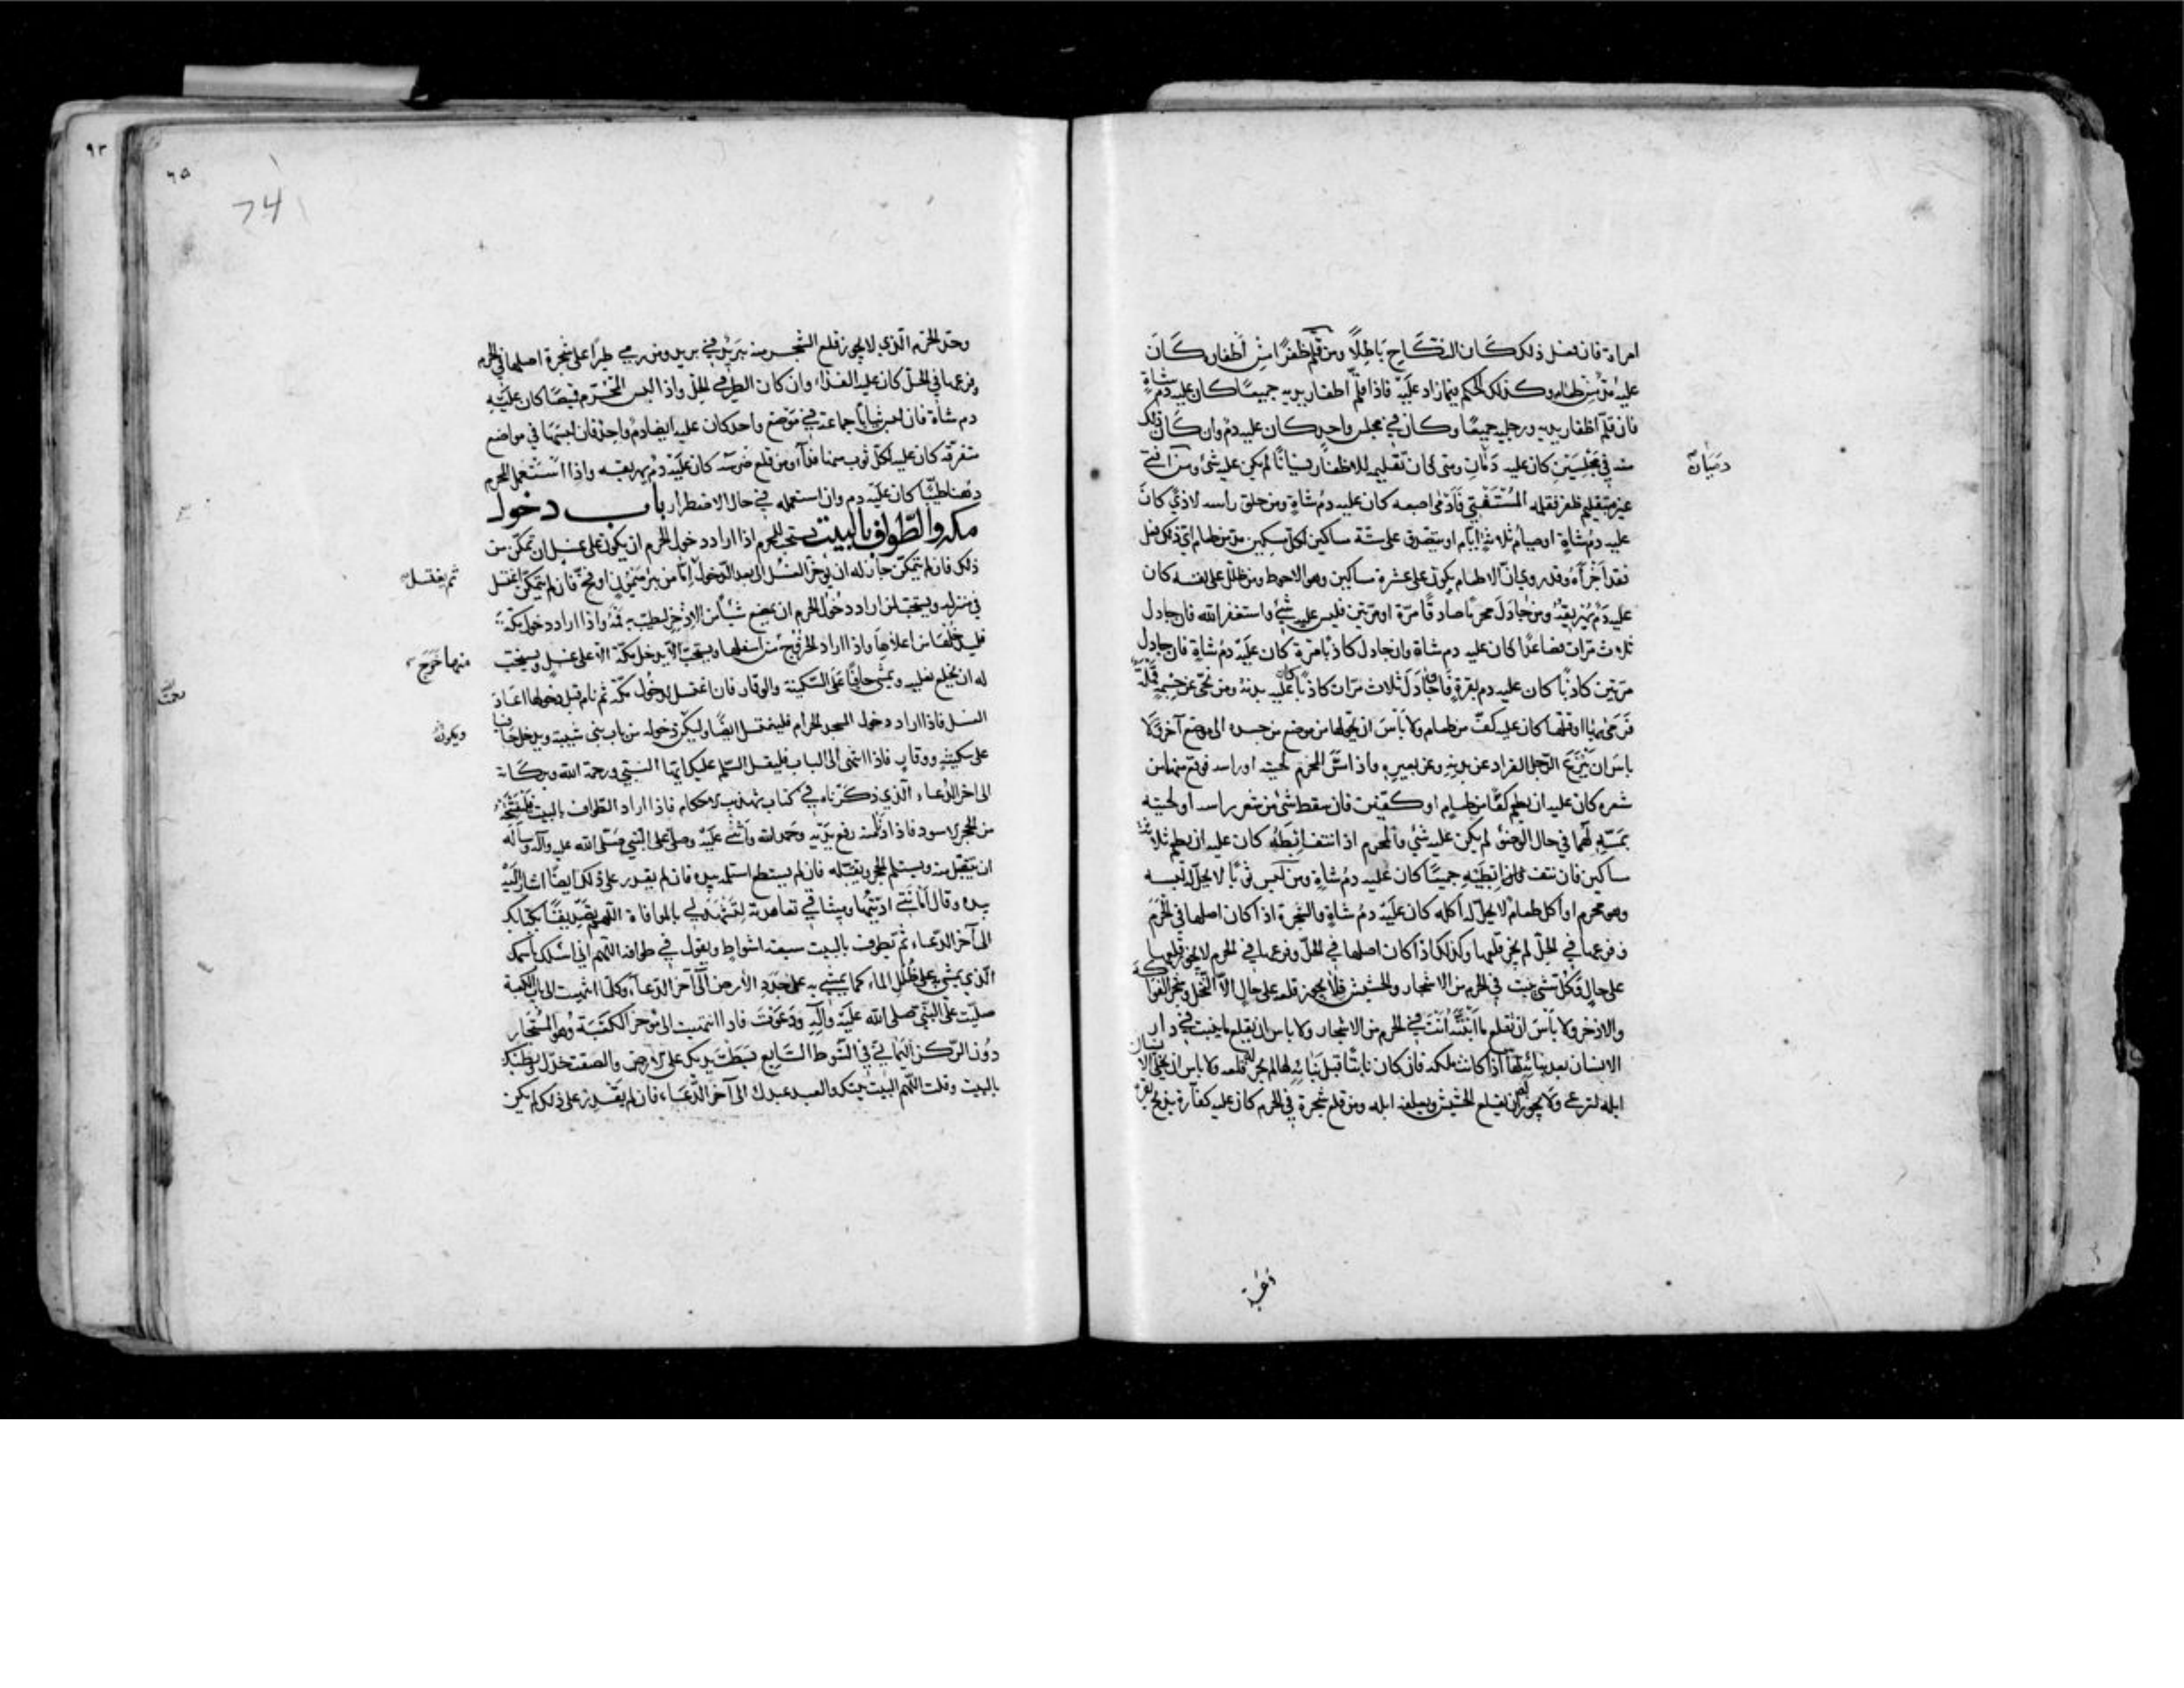 امراة فان فعل ذلك كان النكاح باطلا ومن قلم ظفرا من أظفاره كان
عليه مد من طعام وكذلك الحكم فيما زاد عليه فاذا قلم اظفار يديه جميعا كان عليه دم شاة
فان قلم اظفار يديه ورجليه جميعا وكان في مجلس واحد كان عليه دم وان كان ذلك
منه في مجلسين كان عليه دمان ومتى كان تقليمه للاظفار نسيانا لم يكن عليه شئ ومن افتى
دمان
غيره بتقليم ظفر فقلمه المستفتي فأدمى اصبعه كان عليه دم شاة ومن حلق راسه لاذى كان
عليه دم شاة او صيام ثلاثة ايام او يتصدق على ستة مساكين لكل مسكين مد من طعام اي ذلك فعل
فقد أجزأه وقد روي ان الاطعام يكون على عشرة مساكين وهو الاحوط ومن ظلل على نفسه كان
عليه دم يهريقه ومن جادل محرما صادقا مرة او مرتين فليس عليه شئ واستغفر الله فان جادل
ثلاث مرات فصاعدا كان عليه دم شاة وان جادل كاذبا مرة كان عليه دم شاة فان جادل
مرتين كاذبا كان عليه دم بقرة فان جادل ثلاث مرات كاذبا كان عليه بدنة ومن نحى عن جسمه قملة
فرمى بها او قتلها كان عليه كف من طعام ولا بأس ان يحولها من موضع من جسده الى موضع آخر ولا
باس ان ينزع الرجل القراد عن بدنه وعن بعيره واذا مس المحرم لحيته او راسه فوقع منهما من
شعره كان عليه ان يطعم كفا من طعام او كفين فان سقط شئ من شعر راسه او لحيته
بمسه لهما في حال الوضوء لم يكن عليه شئ والمحرم اذا نتف ابطه كان عليه ان يطعم ثلاثة
مساكين فان نتف ابطيه جميعا كان عليه دم شاة ومن لبس ثوبا لا يحل له لبسه
وهو محرم او اكل طعاما لا يحل له اكله كان عليه دم شاة والشجرة اذا كان اصلها في الحرم
وفرعها في الحل لم يجز قلعها وكذلك اذا كان اصلها في الحل وفرعها في الحرم لا يجوز قلعها
على حال وكل شئ ينبت في الحرم من الاشجار والحشيش فلا يجوز قلعه على حال الا النخل وشجر الفواكه
والاذخر ولا بأس ان تقلع ما أنبته أنت في الحرم من الاشجار ولا باس ان يقلع ما ينبت في دار
الانسان بعد بنائه لها اذا كانت ملكه فان كان نابتا قبل بنائه لها لم يجز له قلعه ولا باس ان يخلي الانسان
ابله لترعى ولا يجوز له ان يقلع الحشيش ويعلفه ابله ومن قلع شجرة في الحرم كان عليه كفارة بذبح بقرة
وحد الحرم الذي لا يجوز قلع الشجر منه بريد في بريد ومن رمى طيرا على شجرة اصلها في الحرم
وفرعها في الحل كان عليه الفداء وان كان الطير في الحل واذا لبس المحرم قميصا كان عليه
دم شاة فان لبس ثيابا جماعة في موضع واحد كان عليه ايضا دم واحد فان لبسها في مواضع
متفرقة كان عليه لكل ثوب منها فداء ومن قلع ضرسه كان عليه دم يهريقه واذا استعمل المحرم
دهنا طيبا كان عليه دم وان استعمله في حال الاضطرار باب دخول
مكة والطواف بالبيت يستحب للمحرم اذا اراد دخول الحرم ان يكون على غسل ان تمكن من
ذلك فان لم يتمكن جاز له ان يؤخر الغسل الى بعد الدخول اما من بئر ميمون او فخ فان لم يتمكن اغتسل
ثم يغتسل
في منزله ويستحب لمن اراد دخول الحرم ان يمضغ شيئا من الاذخر ليطيب به فمه واذا اراد دخول مكة
فليدخلها من اعلاها واذا اراد الخروج من اسفلها ويستحب الا يدخل مكة الا على غسل ويستحب
منها خرج
له ان يخلع نعليه ويمشي حافيا على السكينة والوقار فان اغتسل لدخول مكة ثم نام قبل دخولها اعاد
الغسل فاذا اراد دخول المسجد الحرام فليغتسل ايضا وليكن دخوله من باب بني شيبة ويدخل حافيا
ويكون
على سكينة ووقار فاذا انتهى الى الباب فليقل السلام عليك ايها النبي ورحمة الله وبركاته
الى اخر الدعاء الذي ذكرناه في كتاب تهذيب الاحكام فاذا اراد الطواف بالبيت فليفتتحه
من الحجر الاسود فاذا دنا منه رفع يديه وحمد الله وأثنى عليه وصلى على النبي صلى الله عليه وآله وسأله
ان يتقبل منه ويستلم الحجر ويقبله فان لم يستطع استلمه بيده فان لم يقدر على ذلك ايضا اشار اليه
بيده وقال أمانتي اديتها وميثاقي تعاهدته لتشهد لي بالموافاة اللهم تصديقا بكتابك
الى آخر الدعاء ثم يطوف بالبيت سبعة اشواط ويقول في طوافه اللهم اني اسئلك باسمك
الذي يمشى به على ظلل الماء كما يمشى به على جدد الارض الى آخر الدعاء وكلما انتهيت الى باب الكعبة
صليت على النبي صلى الله عليه وآله ودعوت فاذا انتهيت الى مؤخر الكعبة وهو المستجار
دون الركن اليماني في الشوط السابع بسطت يديك على الارض والصقت خدك وبطنك
بالبيت وقلت اللهم البيت بيتك والعبد عبدك الى آخر الدعاء فان لم يقدر على ذلك لم يكن
٩٣
٦٥
74